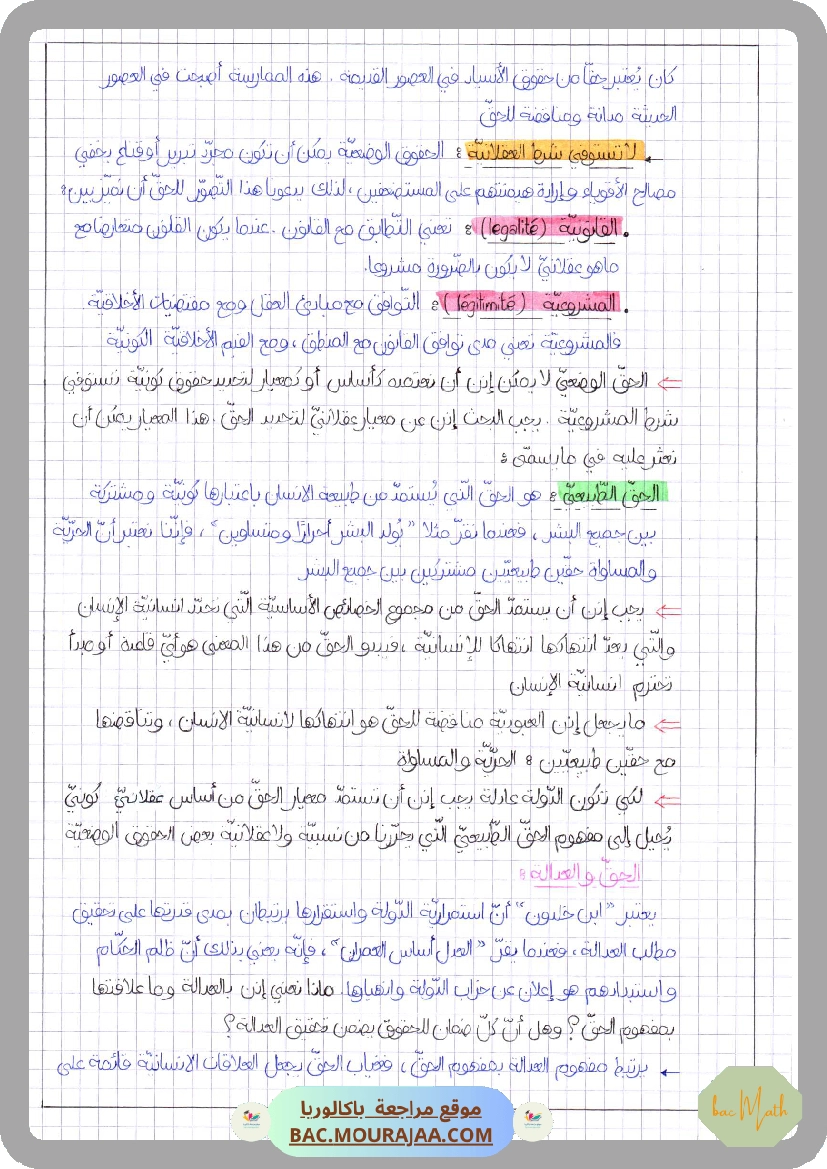 كان يُعتبر حقّا من حقوق الأسياد في العصور القديمة . هذه الممارسة أصبحت في العصور
الحديثة مدانة ومناقضة للحقّ
لا تستوفي شرط العقلانيّة : الحقوق الوضعيّة يمكن أن تكون مجرّد تبرير أو قناع يخفي
مصالح الأقوياء وإرادة هيمنتهم على المستضعفين ، لذلك يدعونا هذا التّصوّر للحقّ أن نميّز بين :
• القانونيّة (légalité) : تعني التّطابق مع القانون . عندما يكون القانون متعارضا مع
ماهو عقلانيّ لا يكون بالضّرورة مشروعا.
• المشروعيّة (légitimité) : التّوافق مع مبادئ العقل ومع مقتضيات الأخلاقيّة
فالمشروعيّة تعني مدى توافق القانون مع المنطق ، ومع القيم الأخلاقيّة الكونيّة
⇐ الحقّ الوضعيّ لا يمكن إذن أن نعتمده كأساس أو كمعيار لتحديد حقوق كونيّة تستوفي
شرط المشروعيّة . يجب البحث إذن عن معيار عقلانيّ لتحديد الحقّ . هذا المعيار يمكن أن
نعثر عليه في ما يسمّى :
الحقّ الطّبيعيّ : هو الحقّ الّذي يُستمدّ من طبيعة الانسان باعتبارها كونيّة ومشتركة
بين جميع البشر ، فعندما نقرّ مثلا "يُولد البشر أحرارًا ومتساوين" ، فإنّنا نعتبر أنّ الحرّيّة
والمساواة حقّين طبيعيّين مشتركين بين جميع البشر
⇐ يجب إذن أن يستمدّ الحقّ من مجموع الخصائص الأساسيّة الّتي تحدّد انسانيّة الإنسان
والّتي يعدّ انتهاكها انتهاكا للإنسانيّة ، فيبدو الحقّ من هذا المعنى هو أيّ قاعدة أو مبدأ
تحترم انسانيّة الإنسان
⇐ ما يجعل إذن العبوديّة مناقضة للحقّ هو انتهاكها لانسانيّة الانسان ، وتناقضها
مع حقّين طبيعيّين : الحرّيّة والمساواة
⇐ لكي تكون الدّولة عادلة يجب إذن أن تستمدّ معيار الحقّ من أساس عقلانيّ كونيّ
يُحيل إلى مفهوم الحقّ الطّبيعيّ الّذي يحرّرنا من نسبيّة ولاعقلانيّة بعض الحقوق الوضعيّة
الحقّ والعدالة :
يعتبر "ابن خلدون" أنّ استمراريّة الدّولة واستقرارها يرتبطان بمدى قدرتها على تحقيق
مطلب العدالة ، فعندما يقرّ "العدل أساس العمران" ، فإنّه يعني بذلك أنّ ظلم الحكّام
واستبدادهم هو إعلان عن خراب الدّولة وانهيارها. ماذا نعني إذن بالعدالة وما علاقتها
بمفهوم الحقّ ؟ وهل أنّ كلّ ضمان للحقوق يضمن تحقيق العدالة ؟
← يرتبط مفهوم العدالة بمفهوم الحقّ ، فغياب الحقّ يجعل العلاقات الانسانيّة قائمة على
bac Math
موقع مراجعة باكالوريا
BAC.MOURAJAA.COM